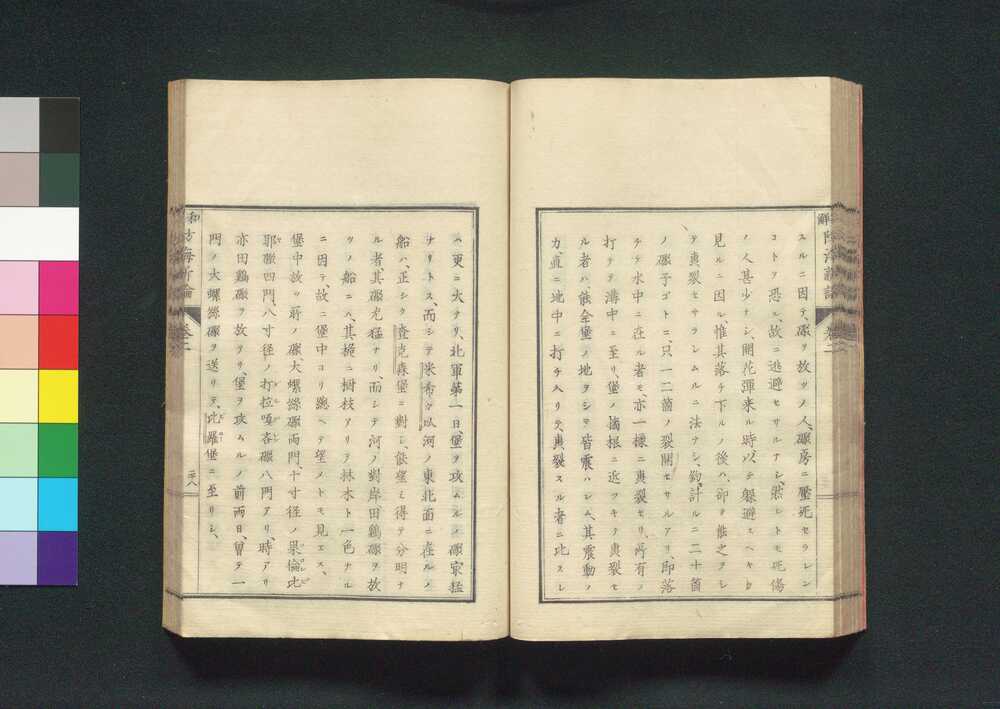 スルニ因テ、礮ヲ放ツノ人、礮房ニ壓死セラレン
コトヲ恐ル、故ニ逃避セサルナシ、然レトモ死傷
ノ人甚少ナシ、開花弾来ル時、以テ躱避スヘキヲ
見ルニ因ル、惟其落チ下ルノ後ハ、卻テ能之ヲシ
テ爽裂セサラシムルニ法ナシ、鈞計ルニ二十箇
ノ礮子ゴトニ、只一二箇ノ裂開セサルアリ、即落
チテ水中ニ在ル者モ、亦一様ニ爽裂セリ、所有ノ
打チテ溝中ニ至リ、堡ノ墻根ニ近ツキテ爽裂セ
ル者ハ、能全堡ノ地ヲシテ皆震ハシム、其震動ノ
力、直ニ地中ニ打チ入リテ、爽裂スル者ニ比スレ
ハ更ニ大ナリ、北軍第一日、堡ヲ攻ムルノ礮家猛
ナリトス、而シテ米希、河ノ東北面ニ在ルノ
船ハ、正シク査克森堡ニ對シ、能望ミ得テ分明ナ
ル者、其礮尤猛ナリ、而シテ河ノ對岸田鶏礮ヲ放
ツノ船ニハ、其桅ニ樹枝アリテ林木ト一色ナル
ニ因テ、故ニ堡中ヨリ總ヘテ望メトモ見エス、
堡中放ツ所ノ礮、大螺絲礮両門、十寸径ノ果倫比
耶礮四門、八寸径ノ打拉喧吝礮八門アリ、時アリ
亦田鶏礮ヲ放アリ、堡ヲ攻ムルノ前両日、曽テ一
門ノ大螺絲礮ヲ送リテ、比羅堡ニ至リシ、
防海新論
卷之